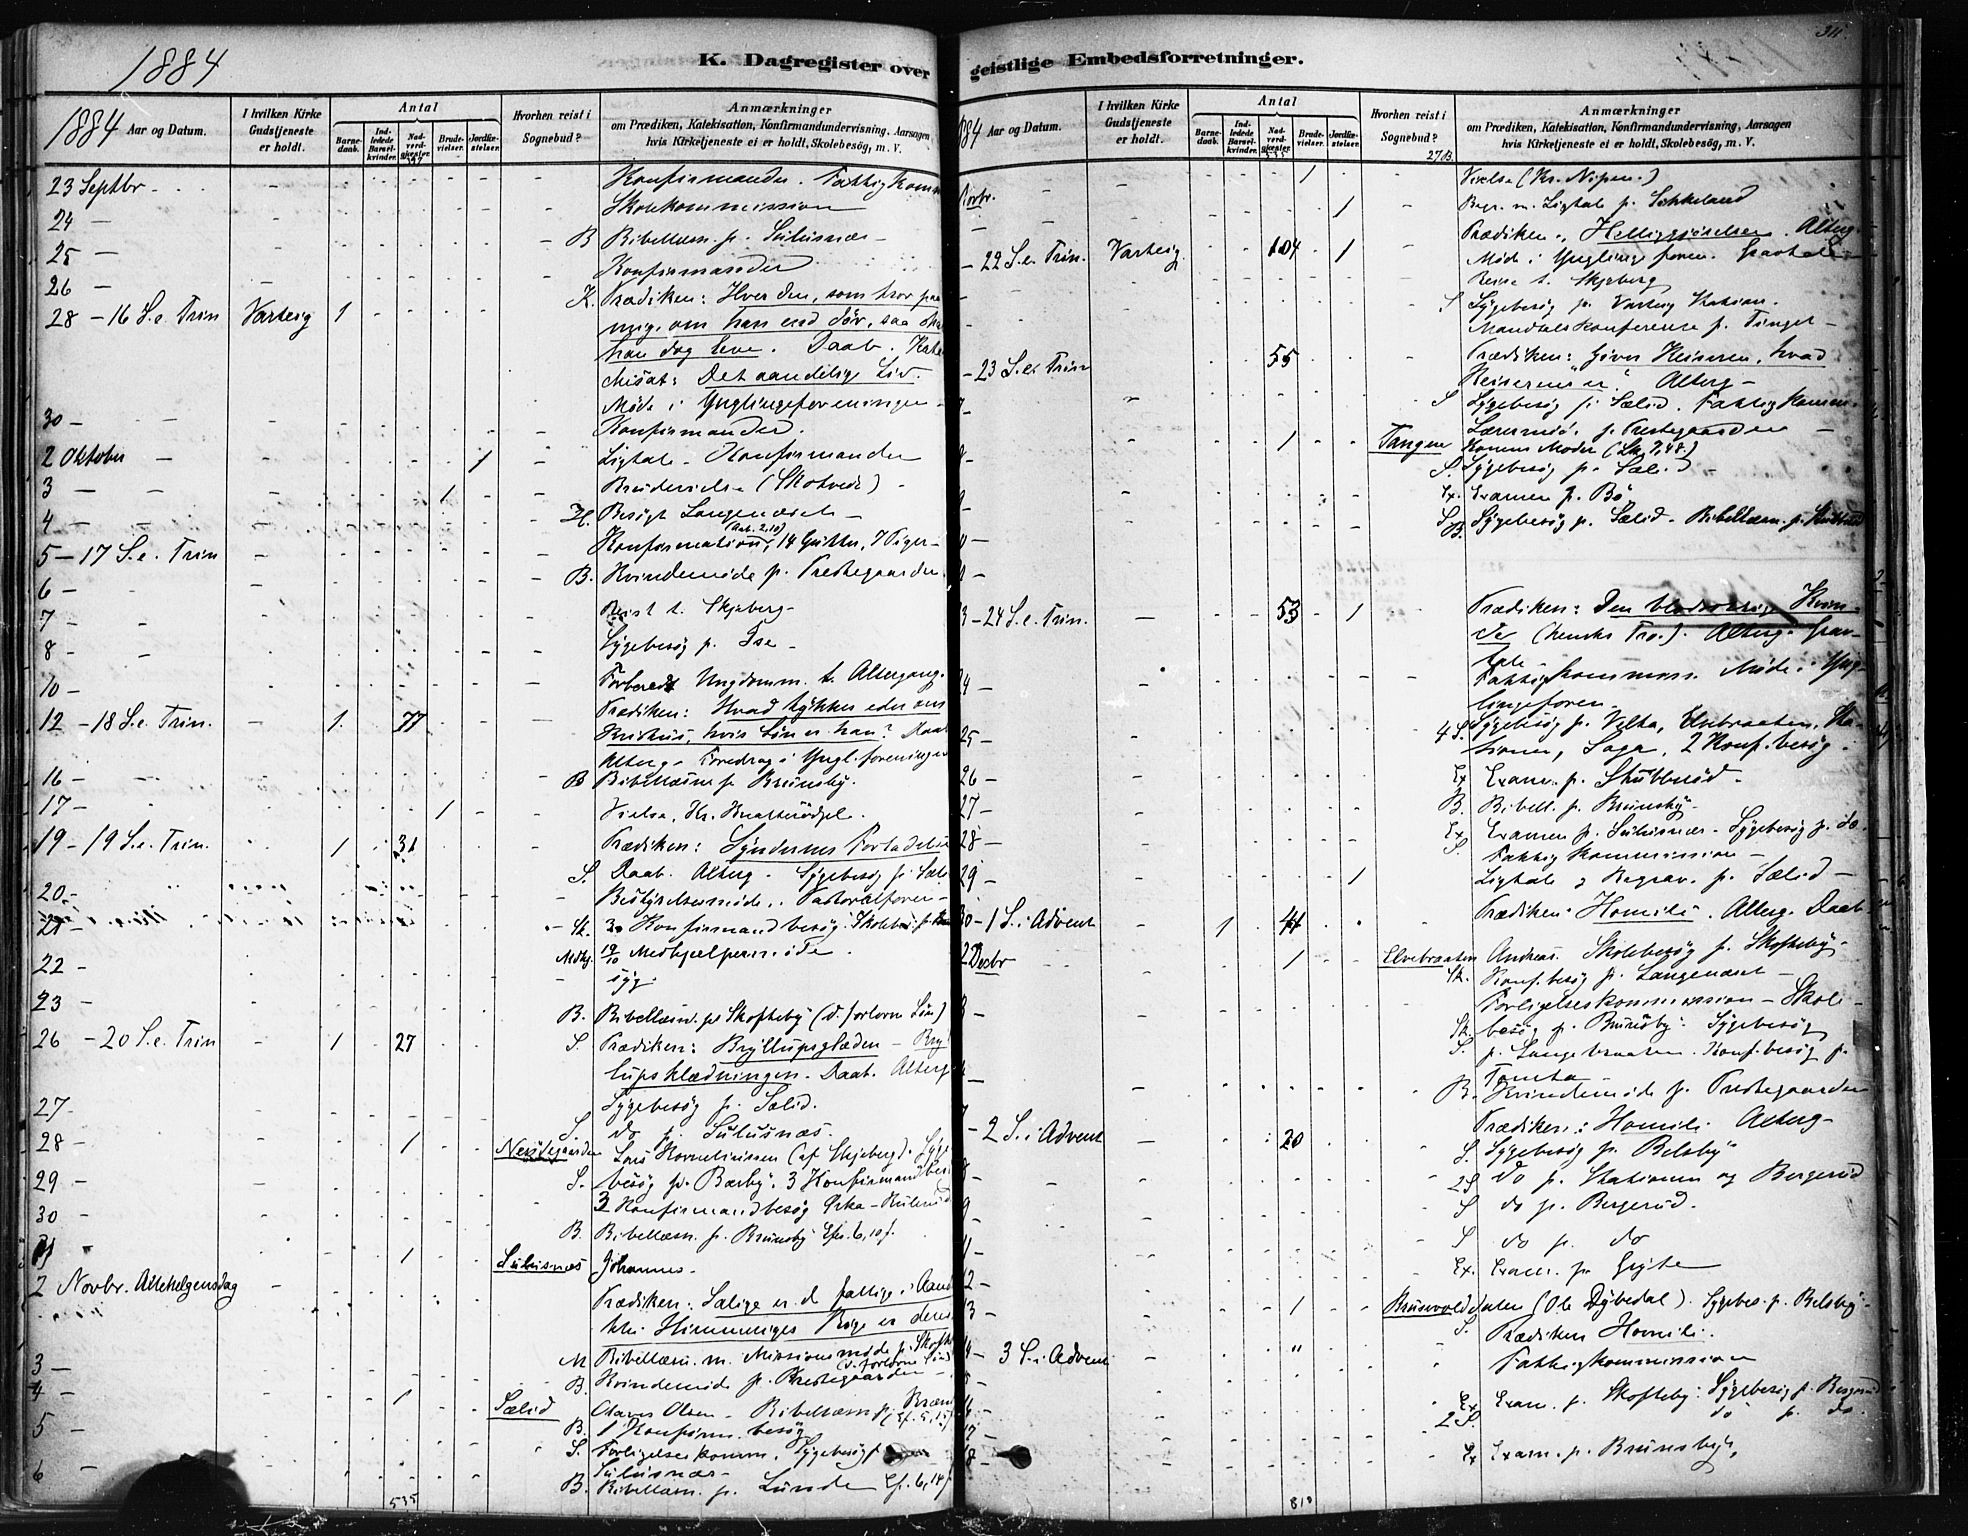 1884
K. Dagregister over
1884 Aar og Datum.
I hvilken Kirke Gudstjeneste er holdt.
Antal
Barnedaab.
Indledede Barselkvinder.
Nadverdgjester.
Brudevielser.
Jordfæstelser.
Hvorhen reist i Sognebud?
Anmærkninger
om Prædiken, Katekisation, Konfirmandundervisning, Aarsagen
hvis Kirketjeneste ei er holdt, Skolebesøg, m. V.
23 Septbr. Konfirmander. Fattigkomm
24 — Skolekommission
25 — B Bibellæsn. p.
26 — Konfirmander
28 — 16 S. e. Trin Varteig 1 K. Prædiken: Hver den, som tror paa
mig, om han end dør, saa skal
han dog leve. Daab. Kate
Det aandelige Liv.
Møde i Ynglingeforeningen
30 — Konfirmander.
2 Oktober — 1 Ligtale. Konfirmander
3 — 1 Brudevielse (Skotvedt)
4 — Besøgt Langenæset
5 — 17 S. e. Trin Konfirmation, 14 Gutter, 7 Piger
6 — B. Kvindemøde p. Prestegaarden
7 — Reist t. Skjeberg
8 — Sygebesøg p. Ise
10 — Forberedt Ungdomm. t. Altergang.
12 — 18 S. e. Trin. 1. 77 Prædiken: Hvad tykkes eder om
Kristus, hvis Søn er han? Daab
Alterg. Foredrag i Yngl.foreningen
16 — B Bibellæsn. p. Brunsby.
17 — 1 Vielse, Kr.
19 — 19 S. e. Trin. 1 31 Prædiken: Syndernes Forladelse
S. Daab. Alterg. Sygebesøg p.
20 — Bestyrelsesmøde. Pastoralforen
21 — Sk. 3 Konfirmandbesøg. Skolebes. p.
Mdhj. 19/10 Medhjælpermøde.
22 — syg
23 — B. Bibellæsn. p. Skofteby (d. forlorne Søn)
26 — 20 S. e. Trin 1 27 S. Prædiken: Bryllupsglæden — Bryl
lupsklædningen. Daab. Alterg
27 — Sygebesøg p. Sælid.
28 1 S do p.
Lars Korneliussen (af Skjeberg). Syge
29 — S. besøg p. Bærby. 3 Konfirmandbesøg
30 — 3 Konfirmandbesøg
B. Bibellæsn. p. Brunsby Efes. 6, 10 f.
31 1 Johannes.
2 Novbr. Allehelgensdag Prædiken: Salige er d. fattige i Aand
thi Himmeriges Rige er deres
3 — M Bibellæsn. m. Missionsmøde p. Skofteby
(d. forlorne Søn)
4 — B. Kvindemøde p. Prestegaarden
1 Sælid Olaves Olsen. Bibellæsn. p.
5 — B. 1 Konfirm. besøg
S. Forligelseskomm. Sygebesøg p.
6 — B. Bibellæsn. p. Lunde Ef. 6, 14 f
535
geistlige Embedsforretninger.
311.
1884 Aar og Datum.
I hvilken Kirke Gudstjeneste er holdt.
Antal
Barnedaab.
Indledede Barselkvinder.
Nadverdgjester.
Brudevielser.
Jordfæstelser.
Hvorhen reist i Sognebud?
Anmærkninger
om Prædiken, Katekisation, Konfirmandundervisning, Aarsagen
hvis Kirketjeneste ei er holdt, Skolebesøg, m. V.
535
27 B.
Novbr. 1 Vielse (Kr. Nipen.)
1 Begr. m. Ligtale p.
— 22 S. e. Trin. Varteig 104 1 Prædiken: Helliggjørelsen. Alterg.
Møde i Ynglingeforen. Gravtale
Reise t. Skjeberg
S Sygebesøg p. Varteig Station.
Mandtalskonference p. Tinget
— 23 S. e. Trin 55 Prædiken: Giver Keiseren, hvad
Keiserens er. Alterg
S Sygebesøg p. Sælid. Fattigkomm.
Lærermøde p. Prestegaarden
1 Tangen Konens Moder (Luk. 7, 48.)
S. Sygebesøg p. Sælid
Ex. Examen p. Bø
S. B. Sygebesøg p. Sælid. Bibellæsn. p.
— 24 S. e. Trin. 53 1 Prædiken: Den blodsottige Kvin
de (hendes Tro). Alterg. Grav
tale
24 — Fattigkommiss. Møde i Yng
lingeforen.
25 — 4 S. Sygebesøg p. Velta, Elvebraaten, Sta
tionen, Saga. 2 Konf.besøg
26 — Ex Exam. p. Stubberød
27 — B. Bibell. p. Brunsby
28 — Ex S. Examen p. — Sygebesøg p. do.
Fattigkommission
29 — 1 Ligtale og Begrav. p. Sælid
30 — 1 S. i Advent 1 41 Prædiken: Homili. Alterg. Daab
2 Decbr 1 Elvebraaten Andreas. Skolebesøg p. Skofteby
Sk. Konf.besøg p. Langenæset
3 — Forligelseskommission — Skole
Sk. besøg p. Brunsby. Sygebesøg
S. p. Langebraaten. Konf.besøg p.
Tomta
4 — B. Kvindemøde p. Prestegaarden
7 — 2 S. i Advent 20 Prædiken: Homili. Alterg
S. Sygebesøg p. Belsby
8 — 2S do p. Stationen og Bergerud
9 — S do p. Bergerud.
11 — S do p. do
12 — Ex. Exam. p.
13 — 1 (Ole Dybedal). Sygebes. p. Belsby
S.
14 — 3 S. i Advent " Prædiken Homili.
Fattigkommission
16 — Ex Exam. p. Skofteby. Sygebesøg p. Bergerud
17 — 2 S. do p. do.
18 — Ex Exam. p. Brunsby,
810